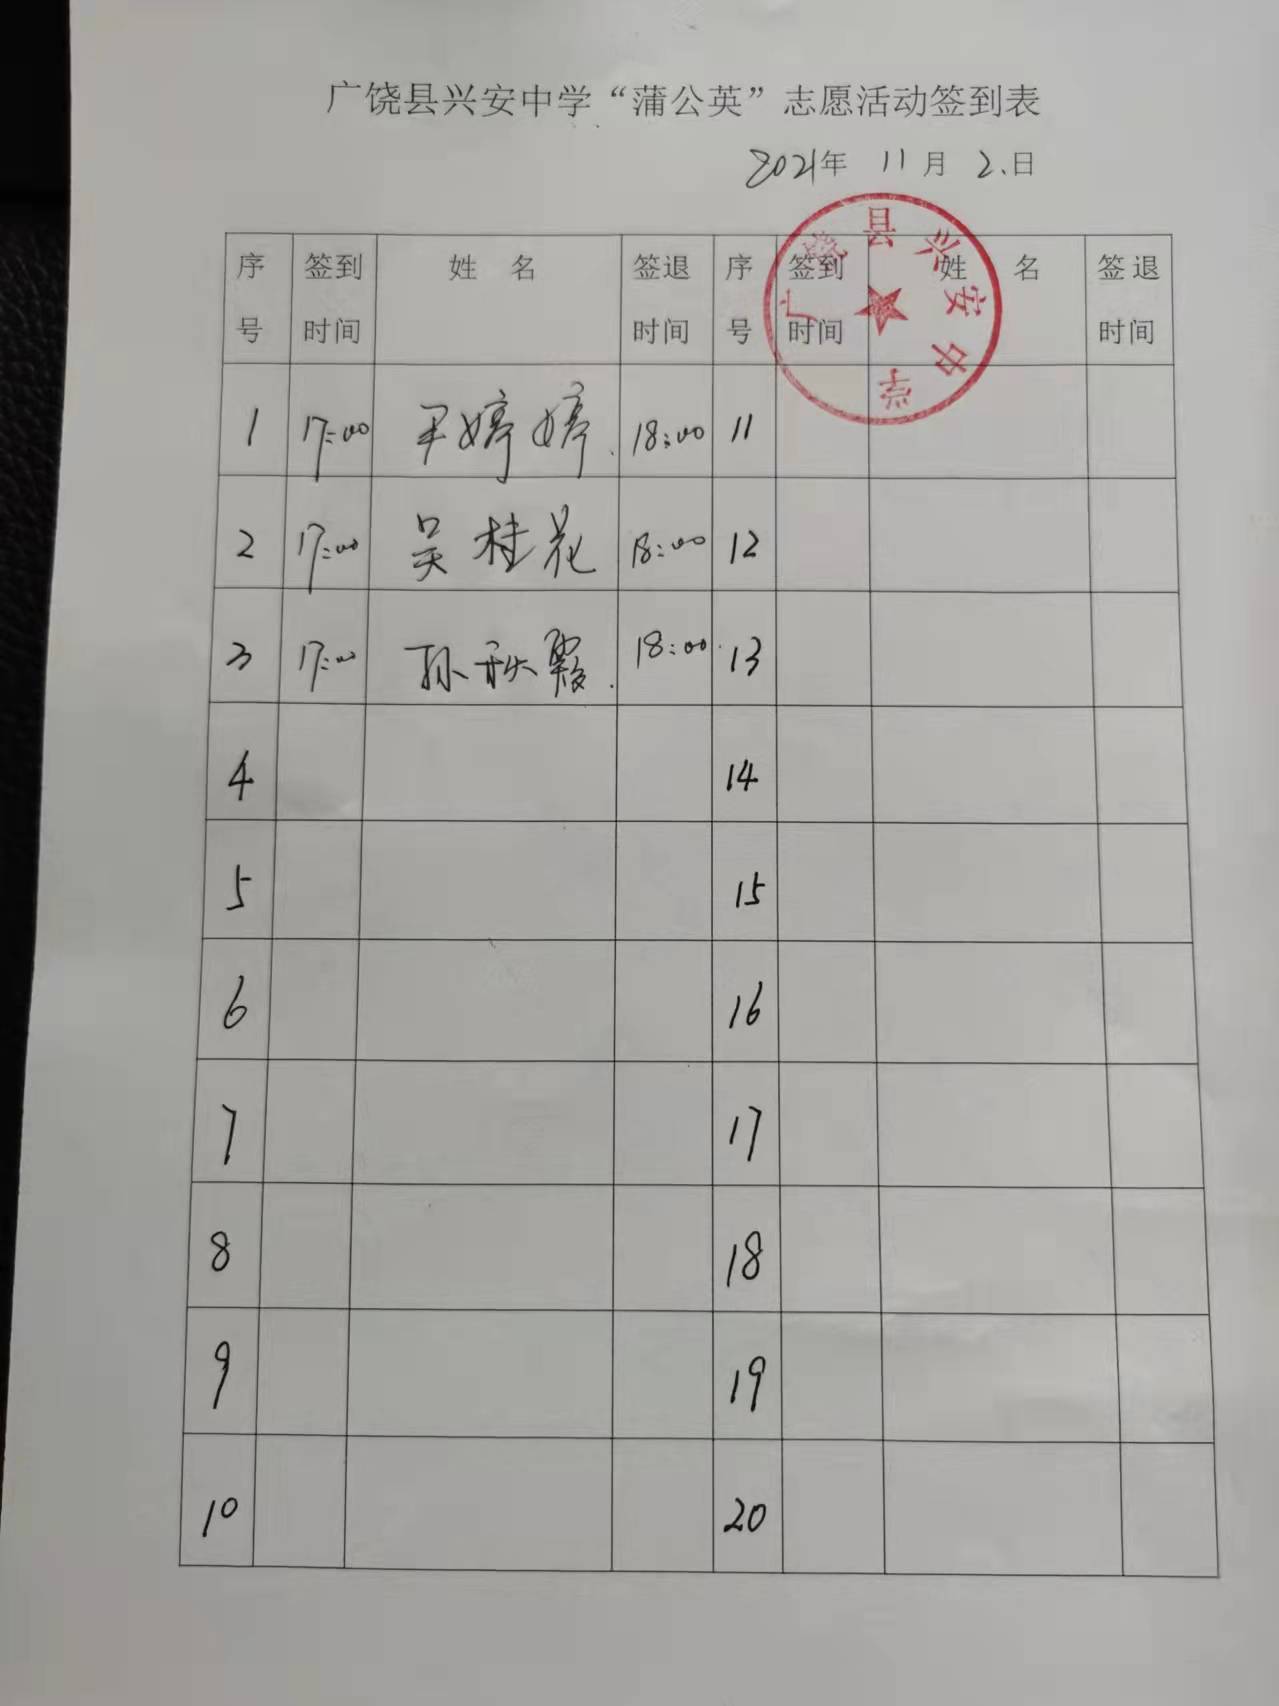 广饶县兴安中学“蒲公英”志愿活动签到表
2021年 11月 2.日
序号 签到时间 姓名 签退时间 序号 签到时间 姓名 签退时间
广饶县兴安中学
1 17:00 王婷婷. 18:00 11
2 17:00 吴桂花 18:00 12
3 17:00 孙秋霞. 18:00 13
4 14
5 15
6 16
7 17
8 18
9 19
10 20